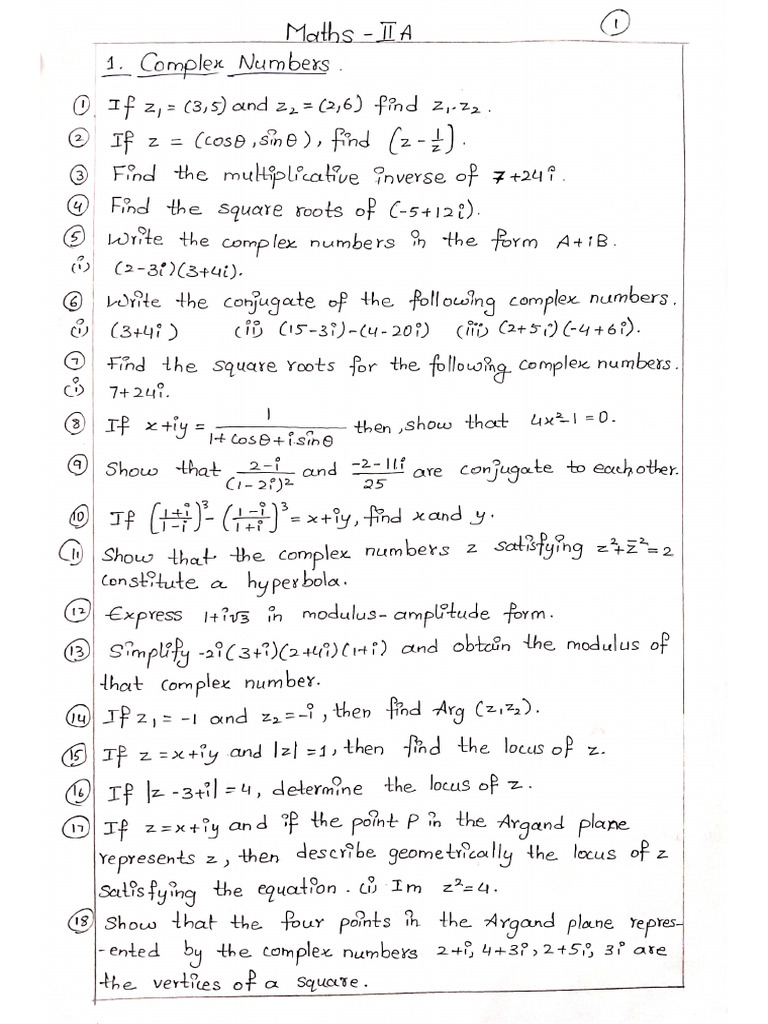 Maths - II A
1
1. Complex Numbers.
① If z₁ = (3,5) and z₂ = (2,6) find z₁.z₂.
② If z = (cosθ, sinθ), find (z - 1/z).
③ Find the multiplicative inverse of 7+24i.
④ Find the square roots of (-5+12i).
⑤ Write the complex numbers in the form A+iB.
(i) (2-3i)(3+4i).
⑥ Write the conjugate of the following complex numbers.
(i) (3+4i) (ii) (15-3i)-(4-20i) (iii) (2+5i)(-4+6i).
⑦ Find the square roots for the following complex numbers.
(i) 7+24i.
⑧ If x+iy = 1/(1+cosθ+i.sinθ) then, show that 4x²-1=0.
⑨ Show that (2-i)/(1-2i)² and (-2-11i)/25 are conjugate to eachother.
⑩ If ((1+i)/(1-i))³ - ((1-i)/(1+i))³ = x+iy, find x and y.
⑪ Show that the complex numbers z satisfying z²+z̄²=2
constitute a hyperbola.
⑫ Express 1+i√3 in modulus-amplitude form.
⑬ Simplify -2i(3+i)(2+4i)(1+i) and obtain the modulus of
that complex number.
⑭ If z₁ = -1 and z₂ = -i, then find Arg (z₁z₂).
⑮ If z = x+iy and |z| = 1, then find the locus of z.
⑯ If |z - 3+i| = 4, determine the locus of z.
⑰ If z = x+iy and if the point P in the Argand plane
represents z, then describe geometrically the locus of z
satisfying the equation. (i) Im z² = 4.
⑱ Show that the four points in the Argand plane repres-
-ented by the complex numbers 2+i, 4+3i, 2+5i, 3i are
the vertices of a square.